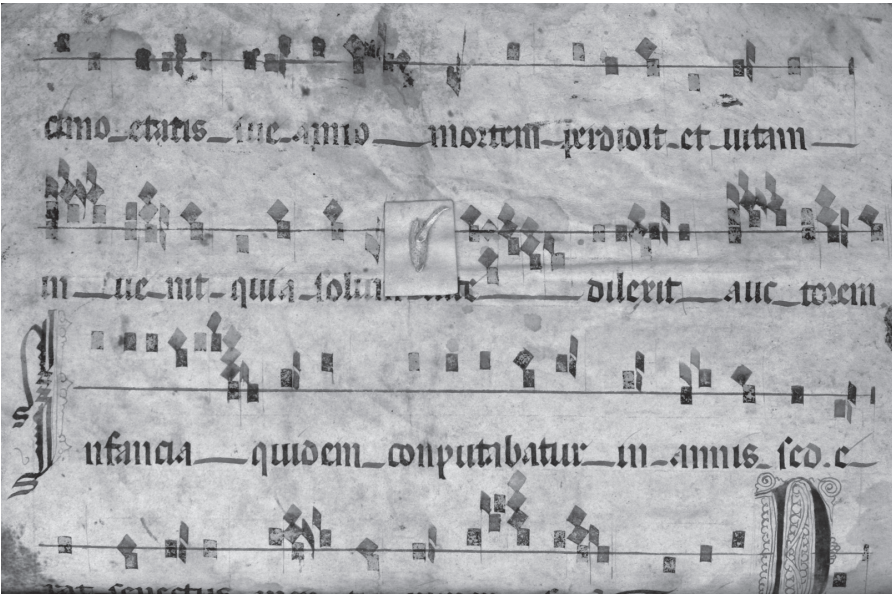 cimo etatis sue anno mortem perdidit et uitam
in ue nit quia dilexit auc torem
Infancia quidem conputabatur in annis sed e
rat senectus